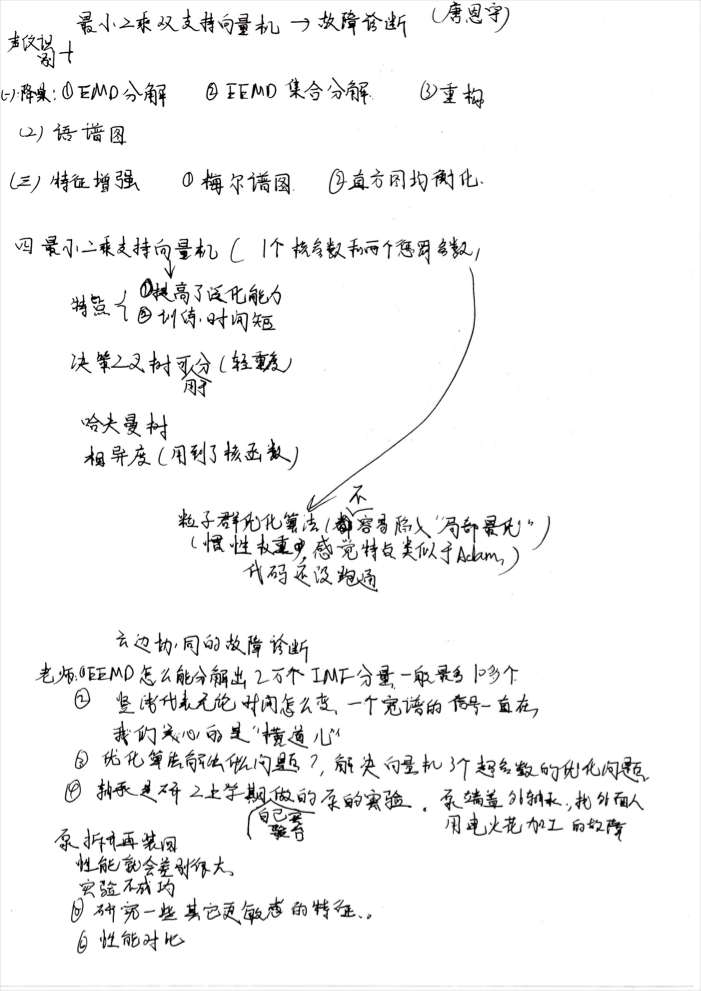 最小二乘双支持向量机 → 故障诊断 (唐恩宇)
声仪识别
(一)降噪: ① EMD分解 ② EEMD 集合分解 ③ 重构
(2) 语谱图
(三) 特征增强 ① 梅尔谱图 ② 直方图均衡化.
四 最小二乘支持向量机 ( 1个核参数和两个惩罚参数)
特点 { ①提高了泛化能力
② 训练时间短
决策二叉树可分 (轻重度)
用于
哈夫曼树
相异度 (用到了核函数)
粒子群优化算法 (不容易陷入"局部最优")
(惯性权重 感觉特点类似于Adam,)
代码还没跑通
云边协同的故障诊断
老师: ① EEMD 怎么能分解出2万个IMF分量 一般最多10多个
② 竖线代表无论时间怎么变, 一个宽谱的信号一直在,
我们关心的是"横道儿"
③ 优化算法解决什么问题?, 解决向量机3个超参数的优化问题
④ 轴承是研2上学期做的泵的实验. 泵端盖外轴承, 找外面人
自己实验台 用电火花加工的故障
泵拆开再装回
性能就会差别很大,
实验不成功
⑤ 研究一些其它更敏感的特征..
⑥ 性能对比